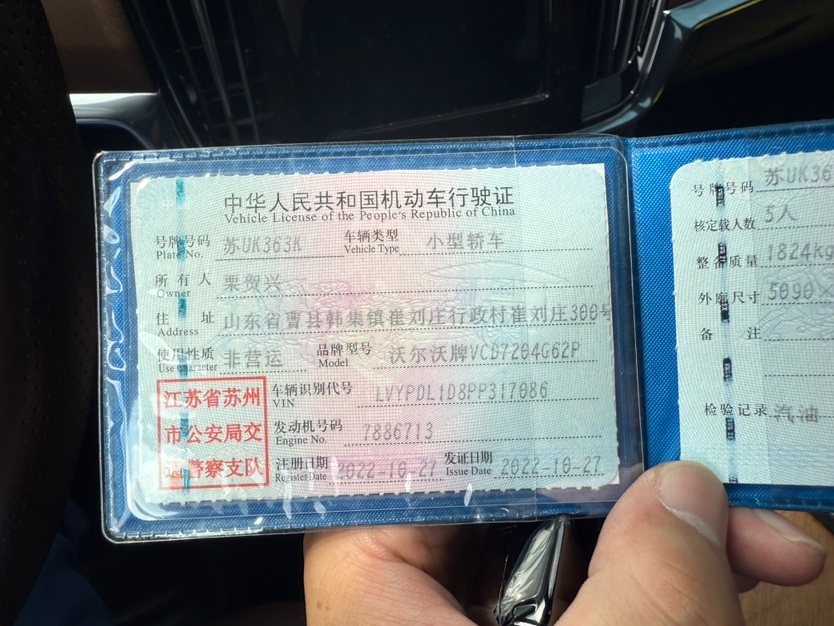 中华人民共和国机动车行驶证
Vehicle License of the People's Republic of China
号牌号码 苏UK363K 车辆类型 小型轿车
Plate No. Vehicle Type
所有人 栗贺兴
Owner
住址 山东省曹县韩集镇崔刘庄行政村崔刘庄300号
Address
使用性质 非营运 品牌型号 沃尔沃牌VCD7204G62P
Use Character Model
江苏省苏州
市公安局交
通警察支队
车辆识别代号 LVYPDL1D8PP317086
VIN
发动机号码 7886713
Engine No.
注册日期 2022-10-27 发证日期 2022-10-27
Register Date Issue Date
号牌号码 苏UK36
核定载人数 5人
整备质量 1824kg
外廓尺寸 5090×
备注
检验记录 汽油